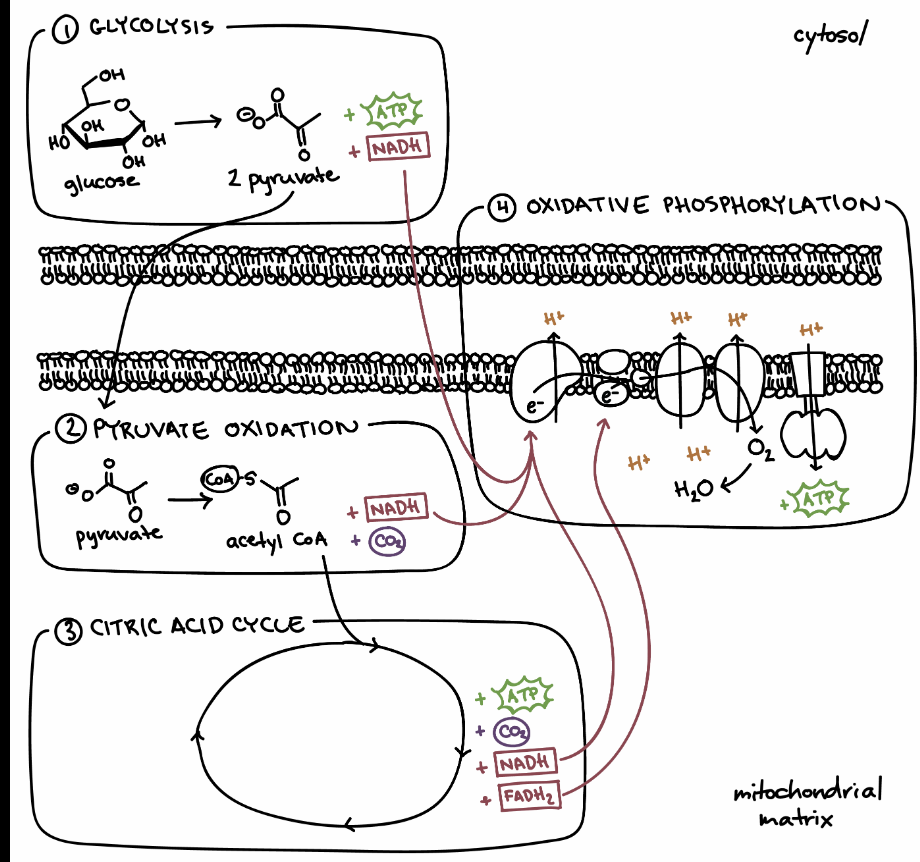 ① GLYCOLYSIS
cytosol
OH
O
OH
HO
OH
OH
glucose
⊖O
O
O
2 pyruvate
+ ATP
+ NADH
④ OXIDATIVE PHOSPHORYLATION
H+
H+
H+
H+
e-
e-
O₂
H+
H+
H₂O
+ ATP
② PYRUVATE OXIDATION
⊖O
O
O
pyruvate
CoA-S
O
acetyl CoA
+ NADH
+ CO₂
③ CITRIC ACID CYCLE
+ ATP
+ CO₂
+ NADH
+ FADH₂
mitochondrial
matrix